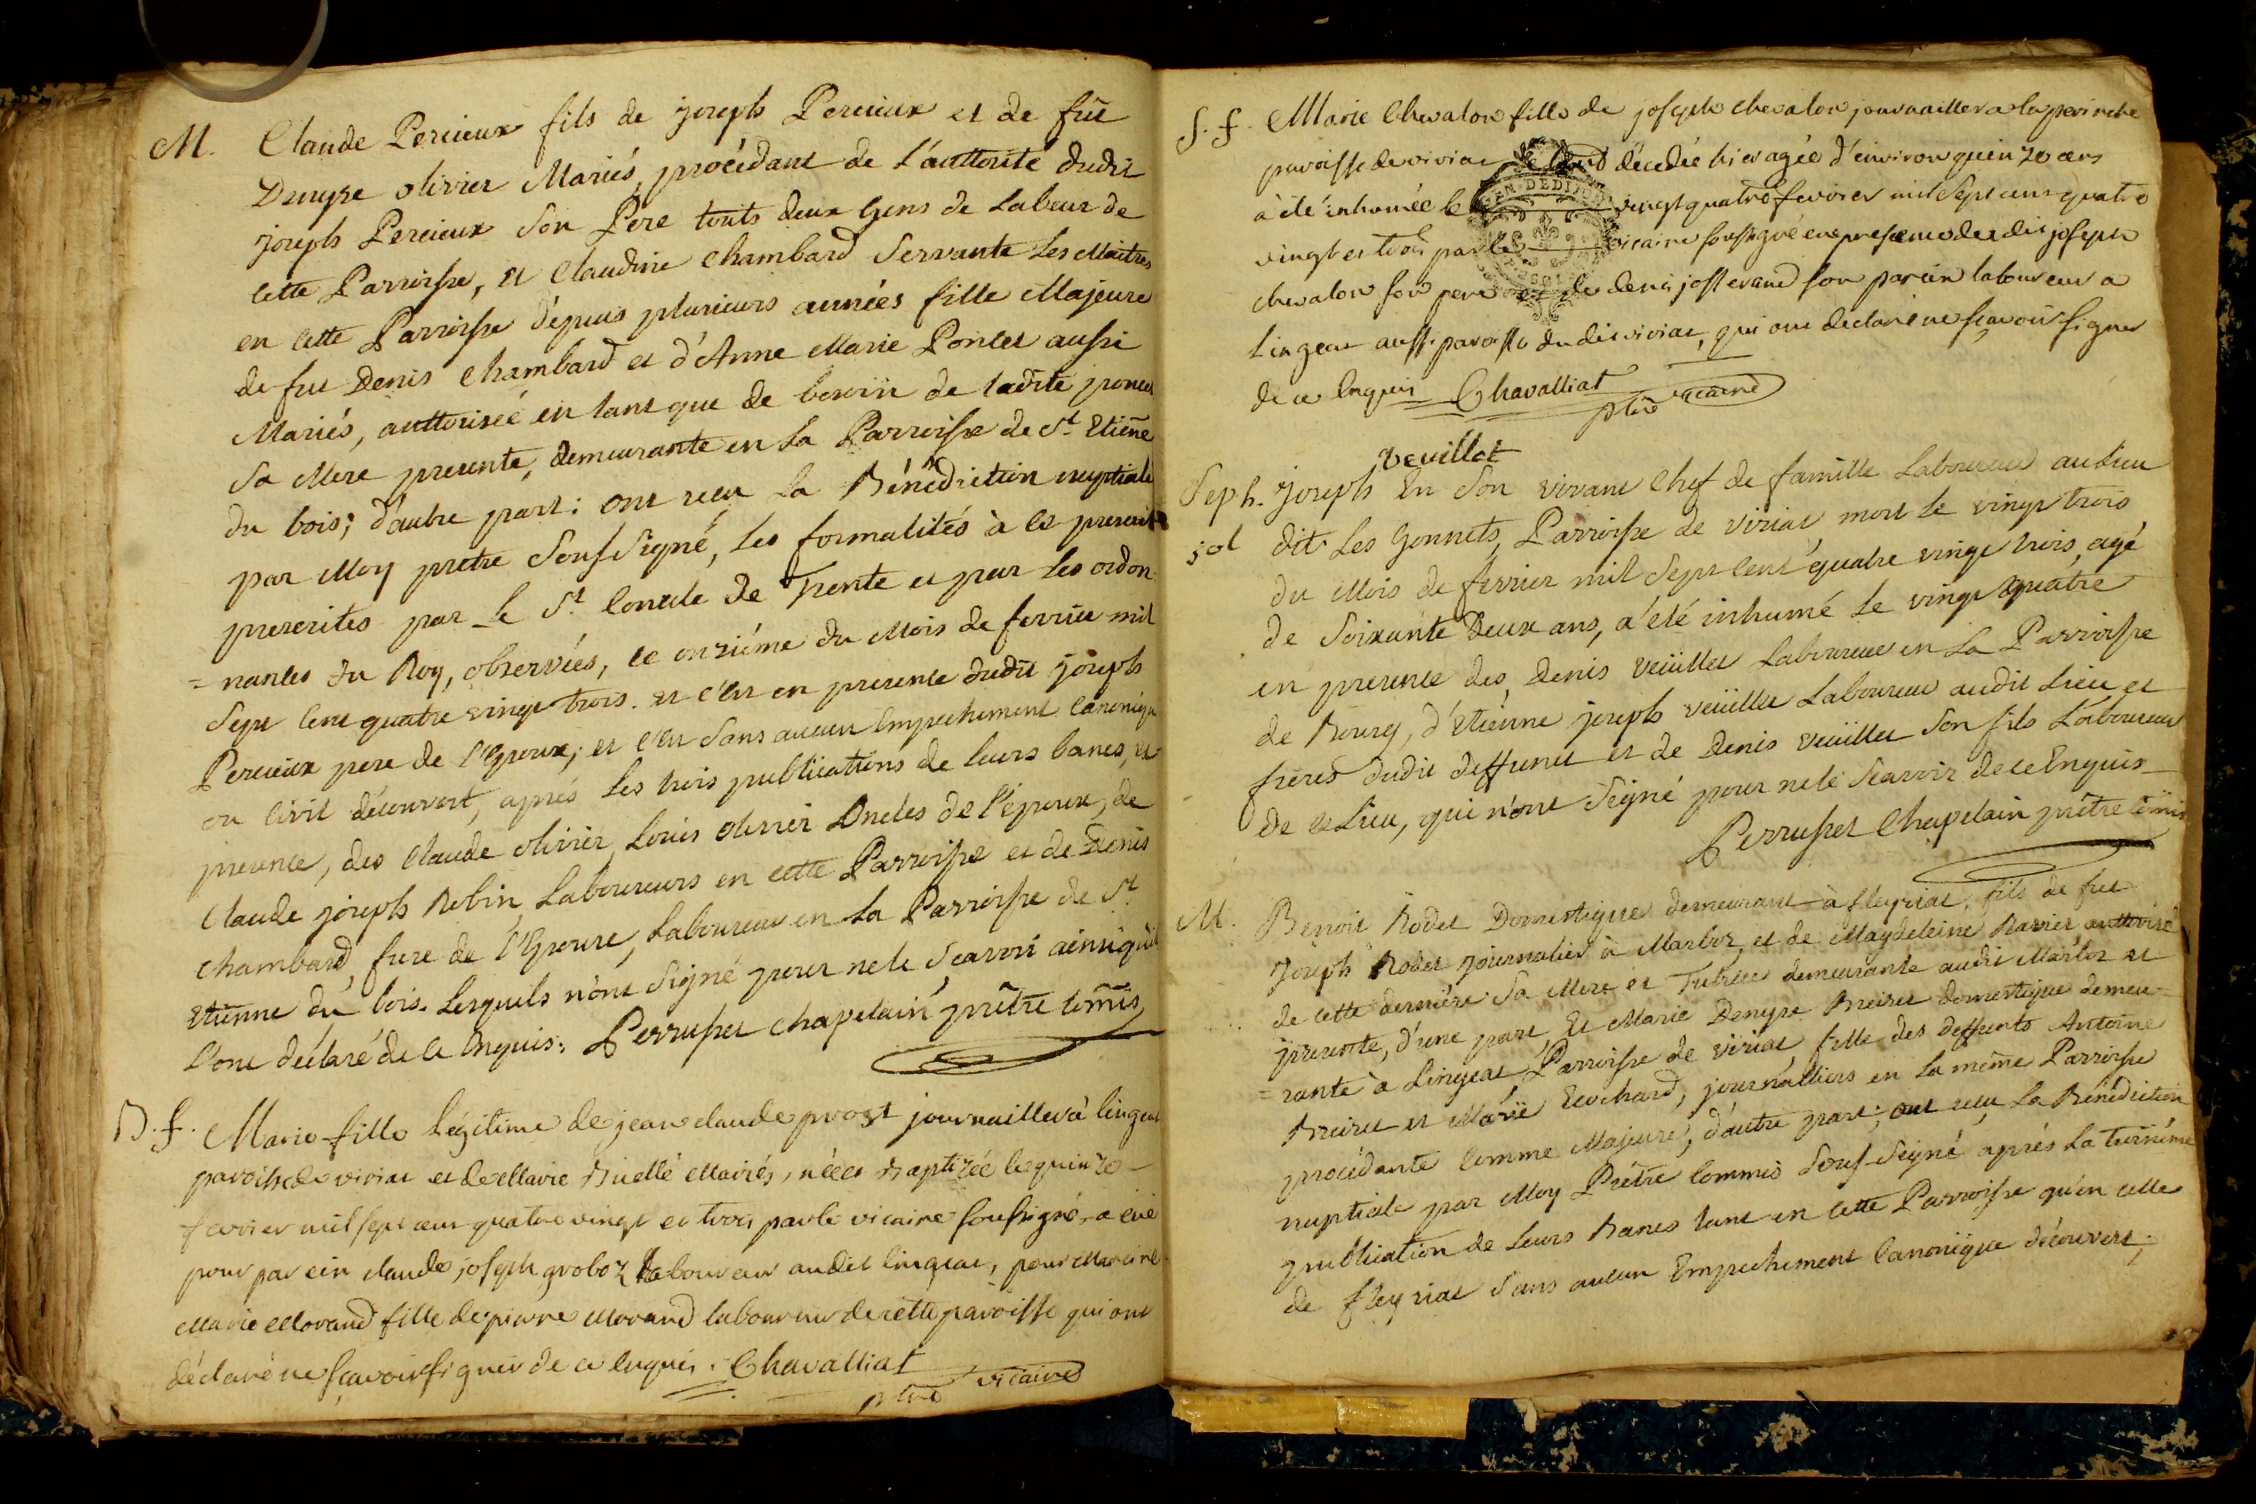 M. Claude Percieux fils de joseph Percieux et de füe
Denyse olivier Mariés, procédant de l'authorité dudit
joseph Percieux Son Pere touts deux Gens de Labeur de
cette Parroisse, et Claudine Chambard Servante Les Maitres
en cette Parroisse dépuis plusieurs années fille Majeure
de fut Denis Chambard et d'Anne Marie Poncet aussi
Mariés, authorisée en tant que de besoin de ladite poncet
Sa Mere presente, demeurante en La Parroisse de St. Etiene
du bois; d'autre part: ont recu La Bénédiction nuptiale
par Moy pretre Sousigné, les formalités à ce
prescrites par Le St. Concile de Trente et par Les ordon-
=nances du Roy, observées, ce onziéme du Mois de fevrier mil
Sept Cent quatre vingt trois. et c'est en presence dudit joseph
Percieux pere de l'Epoux; et c'est Sans aucun Empechement Canonique
ou Civil découvert, aprés Les trois publications de leurs bancs, et
presence, des Claude olivier, Louis olivier Oncles de l'époux, de
Claude joseph Robin, Laboureurs en cette Parroisse et de Denis
Chambard, frere de l'Epouse, Laboureur en La Parroisse de St.
Etienne du bois. Lesquels n'ont Signé pour ne le Scavoir ainsi qu'ils
l'ont déclaré de ce Enquis: Perrusset Chapelain prêtre comis
B. f. Marie fille Légitime de jean claude prost journaillier à lingeat
paroisse de viriat et de Marie Mariés, née et Baptizée le quinze
fevrier mil sept cent quatre vingt et trois par le vicaire soussigné, a eue
pour parein claude joseph groboz Laboureur audit lingeat, pour Mareine
Marie Morand fille de pierre Morand laboureur de cette paroisse qui ont
déclaré ne sçavoir signer de ce enquis. Chavalliat
ptre vicaire
S. f. Marie Chevalon fille de joseph chevalon journaillier a la
paroisse de viriat décédée hier agée d'environ quinze ans
a été inhumée le vingt quatre fevrier mil Sept cent quatre
vingt et trois par le vicaire soussigné en presence dudit joseph
chevalon son pere et de denis josserand son parein laboureur a
Lingeat aussi paroisse dudit viriat, qui ont declaré ne sçavoir signer
de ce Enquis Chavalliat
ptre vicaire
Veuillet
Seph. joseph En Son vivant Chef de famille Laboureur au Lieu
dit Les Gonnets, Parroisse de viriat mort le vingt trois
du Mois de fevrier mil Sept Cent quatre vingt trois, agé
de Soixante deux ans, a été inhumé le vingt quatre
en presence des, Denis veüillet Laboureur en La Parroisse
de Bourg, d'Etienne joseph veüillet Laboureur audit Lieu et
freres dudit deffunct et de Denis veüillet Son fils Laboureur
de ce Lieu, qui n'ont Signé pour ne le Scavoir de ce Enquis
Perrusset Chapelain prêtre comis
M. Benoit Rodet Domestique demeurant à fleyriat, fils de fut
Joseph Rodet journalier à Marboz, et de Magdeleine authorisé
de cette derniére Sa Mere et Tutrice demeurante audit Marboz et
presente, d'une part, Et Marie Denyse domestique demeu-
=rante à Lingeat, Parroisse de viriat, fille des deffunts Antoine
et Marie journalliers en La même Parroisse
procédante comme Majeure, d'autre part; ont recu La Bénédiction
nuptiale par Moy Prêtre Commis Sous-Signé aprés La troisiéme
publication de Leurs Bancs tant en cette Parroisse qu'en celle
de fleyriat Sans aucun Empechement Canonique découvert;